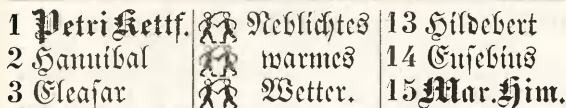 1 Petri Kettf. Neblichtes 13 Hildebert
2 Hannibal warmes 14 Eusebius
3 Eleasar Wetter. 15 Mar. Him.